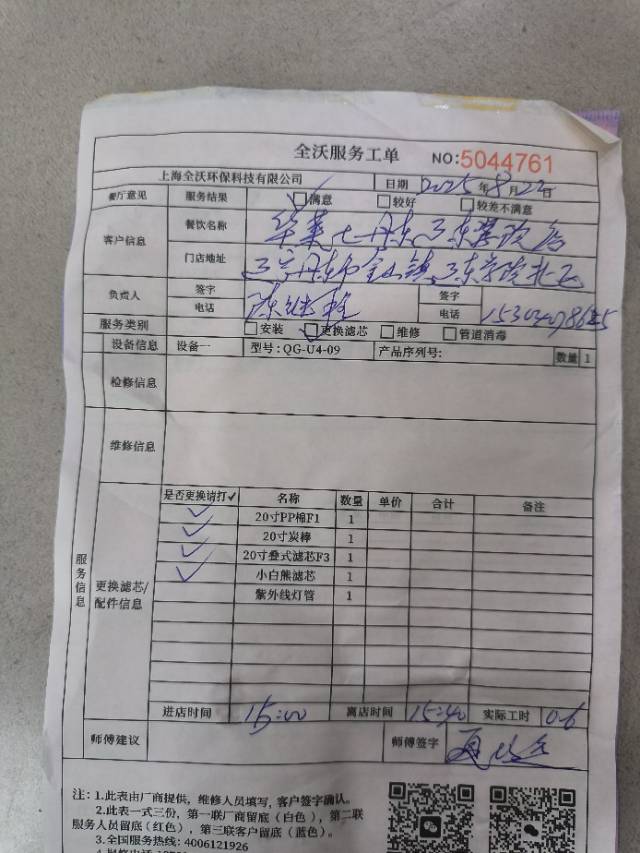 全沃服务工单 NO:5044761
上海全沃环保科技有限公司 日期 2025年8月22日
餐厅意见 服务结果 满意 较好 较差不满意
客户信息 餐饮名称 华莱士丹东辽东学院店
门店地址 辽宁丹东市金山镇辽东学院北
负责人 签字 签字
电话 电话
服务类别 安装 更换滤芯 维修 管道消毒
设备信息 设备一 型号:QG-U4-09 产品序列号: 数量 1
检修信息
维修信息
服务信息
更换滤芯/配件信息
是否更换请打✓ 名称 数量 单价 合计 备注
✓ 20寸PP棉F1 1
✓ 20寸炭棒 1
✓ 20寸叠式滤芯F3 1
✓ 小白熊滤芯 1
紫外线灯管 1
进店时间 15:00 离店时间 15:40 实际工时 0.6
师傅建议 师傅签字
注:1.此表由厂商提供，维修人员填写，客户签字确认。
2.此表一式三份，第一联厂商留底（白色），第二联
服务人员留底(红色)，第三联客户留底（蓝色）。
3.全国服务热线: 4006121926